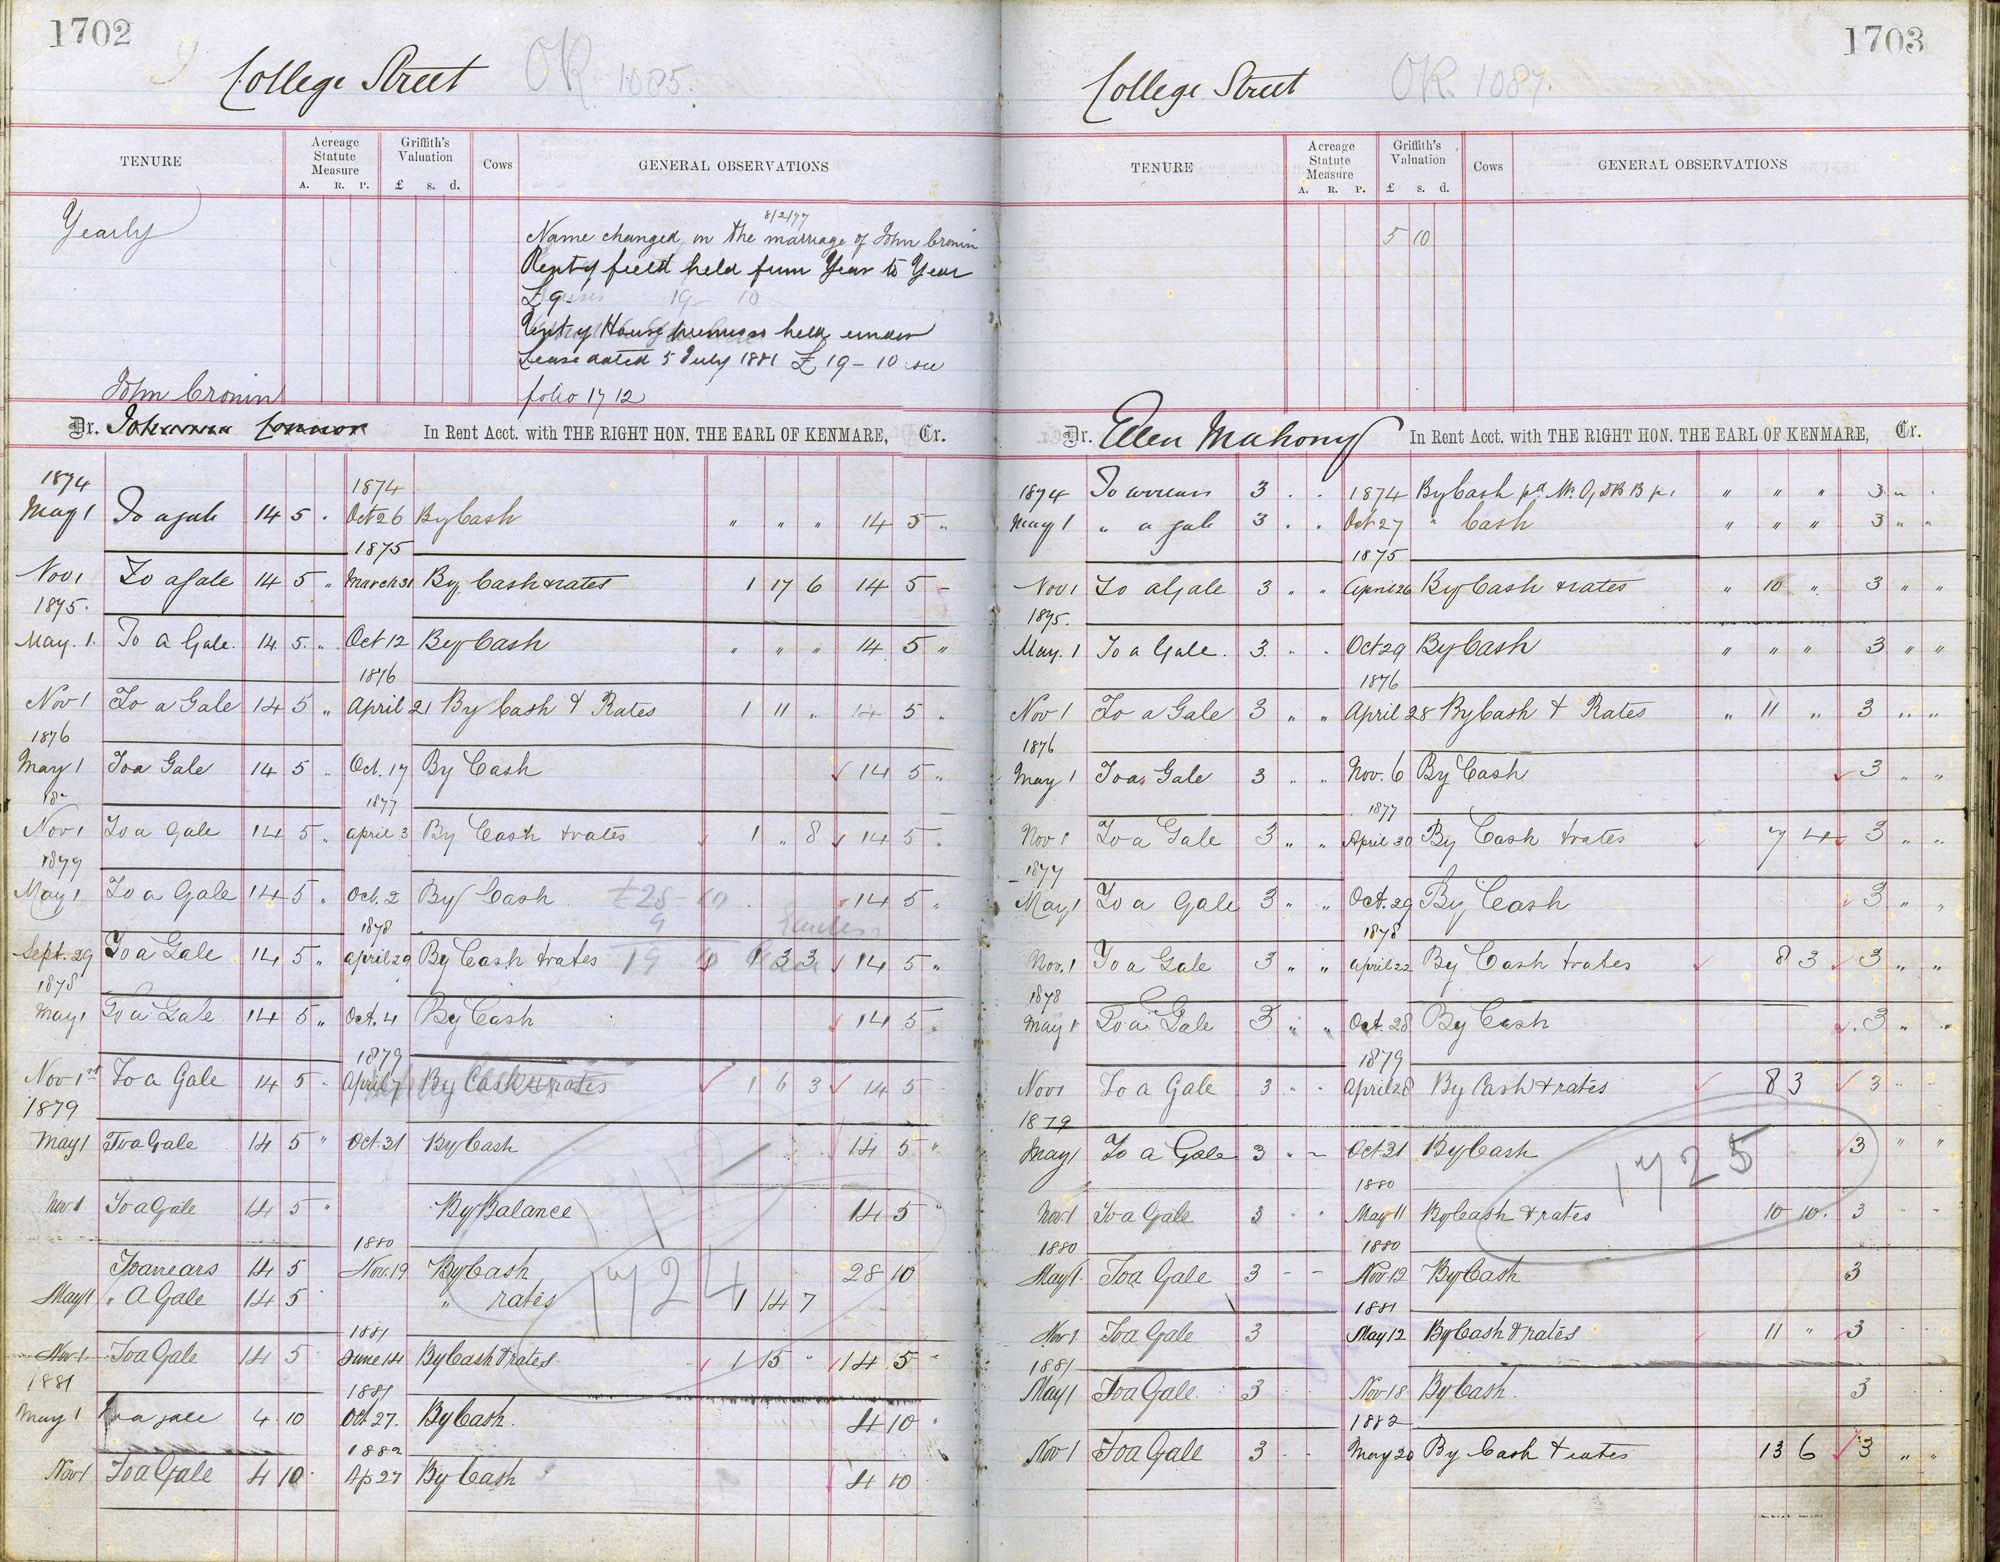 1702
College Street OR. 1085.
TENURE Acreage Statute Measure Griffith's Valuation Cows GENERAL OBSERVATIONS
A. R. P. £ s. d.
Yearly
8/2/77
Name changed on the marriage of John Cronin
Rent of field held from Year to Year
£9- 19 - 10
Rent of House premises held under
Lease dated 5 July 1881 £19-10 see
folio 1712
John Cronin
Dr. Johanna Connor In Rent Acct. with THE RIGHT HON. THE EARL OF KENMARE, Cr.
1874 1874
May 1 To a gale 14 5 . Oct 26 By Cash " " " 14 5 "
1875
Nov 1 To a Gale 14 5 " March 31 By Cash & rates 1 17 6 14 5 -
1875.
May. 1. To a Gale. 14 5. " Oct 12 By Cash " " " 14 5 "
1876
Nov 1 To a Gale 14 5 " April 21 By Cash & Rates 1 11 " 14 5 "
1876
May 1 To a Gale 14 5 " Oct. 17 By Cash 14 5 "
18 1877
Nov 1 To a Gale 14 5 " april 3 By Cash & rates 1 " 8 14 5 "
1877
May 1 To a Gale 14 5 " Oct. 2 By Cash £28-10 14 5 "
1878 9
Sept. 29 To a Gale 14 5 " april 29 By Cash & rates 19 10 1 3 3 14 5 "
1878
May 1 To a Gale 14 5 " Oct. 4 By Cash 14 5 "
1879
Nov 1st To a Gale 14 5 " April 7 By Cash & rates 1 6 3 14 5
1879
May 1 To a Gale 14 5 " Oct 31 By Cash 14 5 "
Nov. 1 To a Gale 14 5 " By Balance 14 5 "
1880
To arrears 14 5 Nov. 19 By Cash 28 10
May 1 " A Gale 14 5 " rates 1 14 7
1724
1881
Nov. 1 To a Gale 14 5 June 14 By Cash & rates 1 15 " 14 5 "
1881 1881
May 1 To a gale 4 10 Oct 27. By Cash. 4 10 "
1882
Nov 1 To a Gale 4 10 Ap 27 By Cash 4 10
1703
College Street OR. 1087.
TENURE Acreage Statute Measure Griffith's Valuation Cows GENERAL OBSERVATIONS
A. R. P. £ s. d.
5 10
Dr. Ellen Mahony In Rent Acct. with THE RIGHT HON. THE EARL OF KENMARE, Cr.
1874 To arrears 3 . . 1874 By Cash " " " 3 " .
May 1 " a gale 3 . . Oct 27 " Cash " " " 3 " "
1875
Nov 1 To a Gale 3 " " April 26 By Cash & rates " 10 " 3 " "
1875.
May. 1 To a Gale. 3 . . Oct 29 By Cash " " " 3 " "
1876
Nov 1 To a Gale 3 " " April 28 By Cash & Rates " 11 " 3 " "
1876
May 1 To a Gale 3 " " Nov. 6 By Cash 3 " "
1877
Nov 1 To a Gale 3 " " April 30 By Cash & rates 7 4 3 " "
1877
May 1 To a Gale 3 " " Oct. 29 By Cash 3 " "
1878
Nov. 1 To a Gale 3 " " april 22 By Cash & rates 8 3 3 " "
1878
May 1 To a Gale 3 " " Oct. 28 By Cash 3 " "
1879
Nov 1 To a Gale 3 " " April 28 By Cash & rates 8 3 3 " "
1879
May 1 To a Gale 3 " - Oct 21 By Cash 3 " "
1725
1880
Nov. 1 To a Gale 3 " " May 11 By Cash & rates 10 10. 3 - -
1880 1880
May 1. To a Gale 3 - - Nov 12 By Cash 3
1881
Nov 1 To a Gale 3 May 12 By Cash & rates 11 " 3
1881
May 1 To a Gale 3 Nov 18 By Cash. 3
1882
Nov 1 To a Gale 3 - - May 20 By Cash & rates 13 6 3 " "